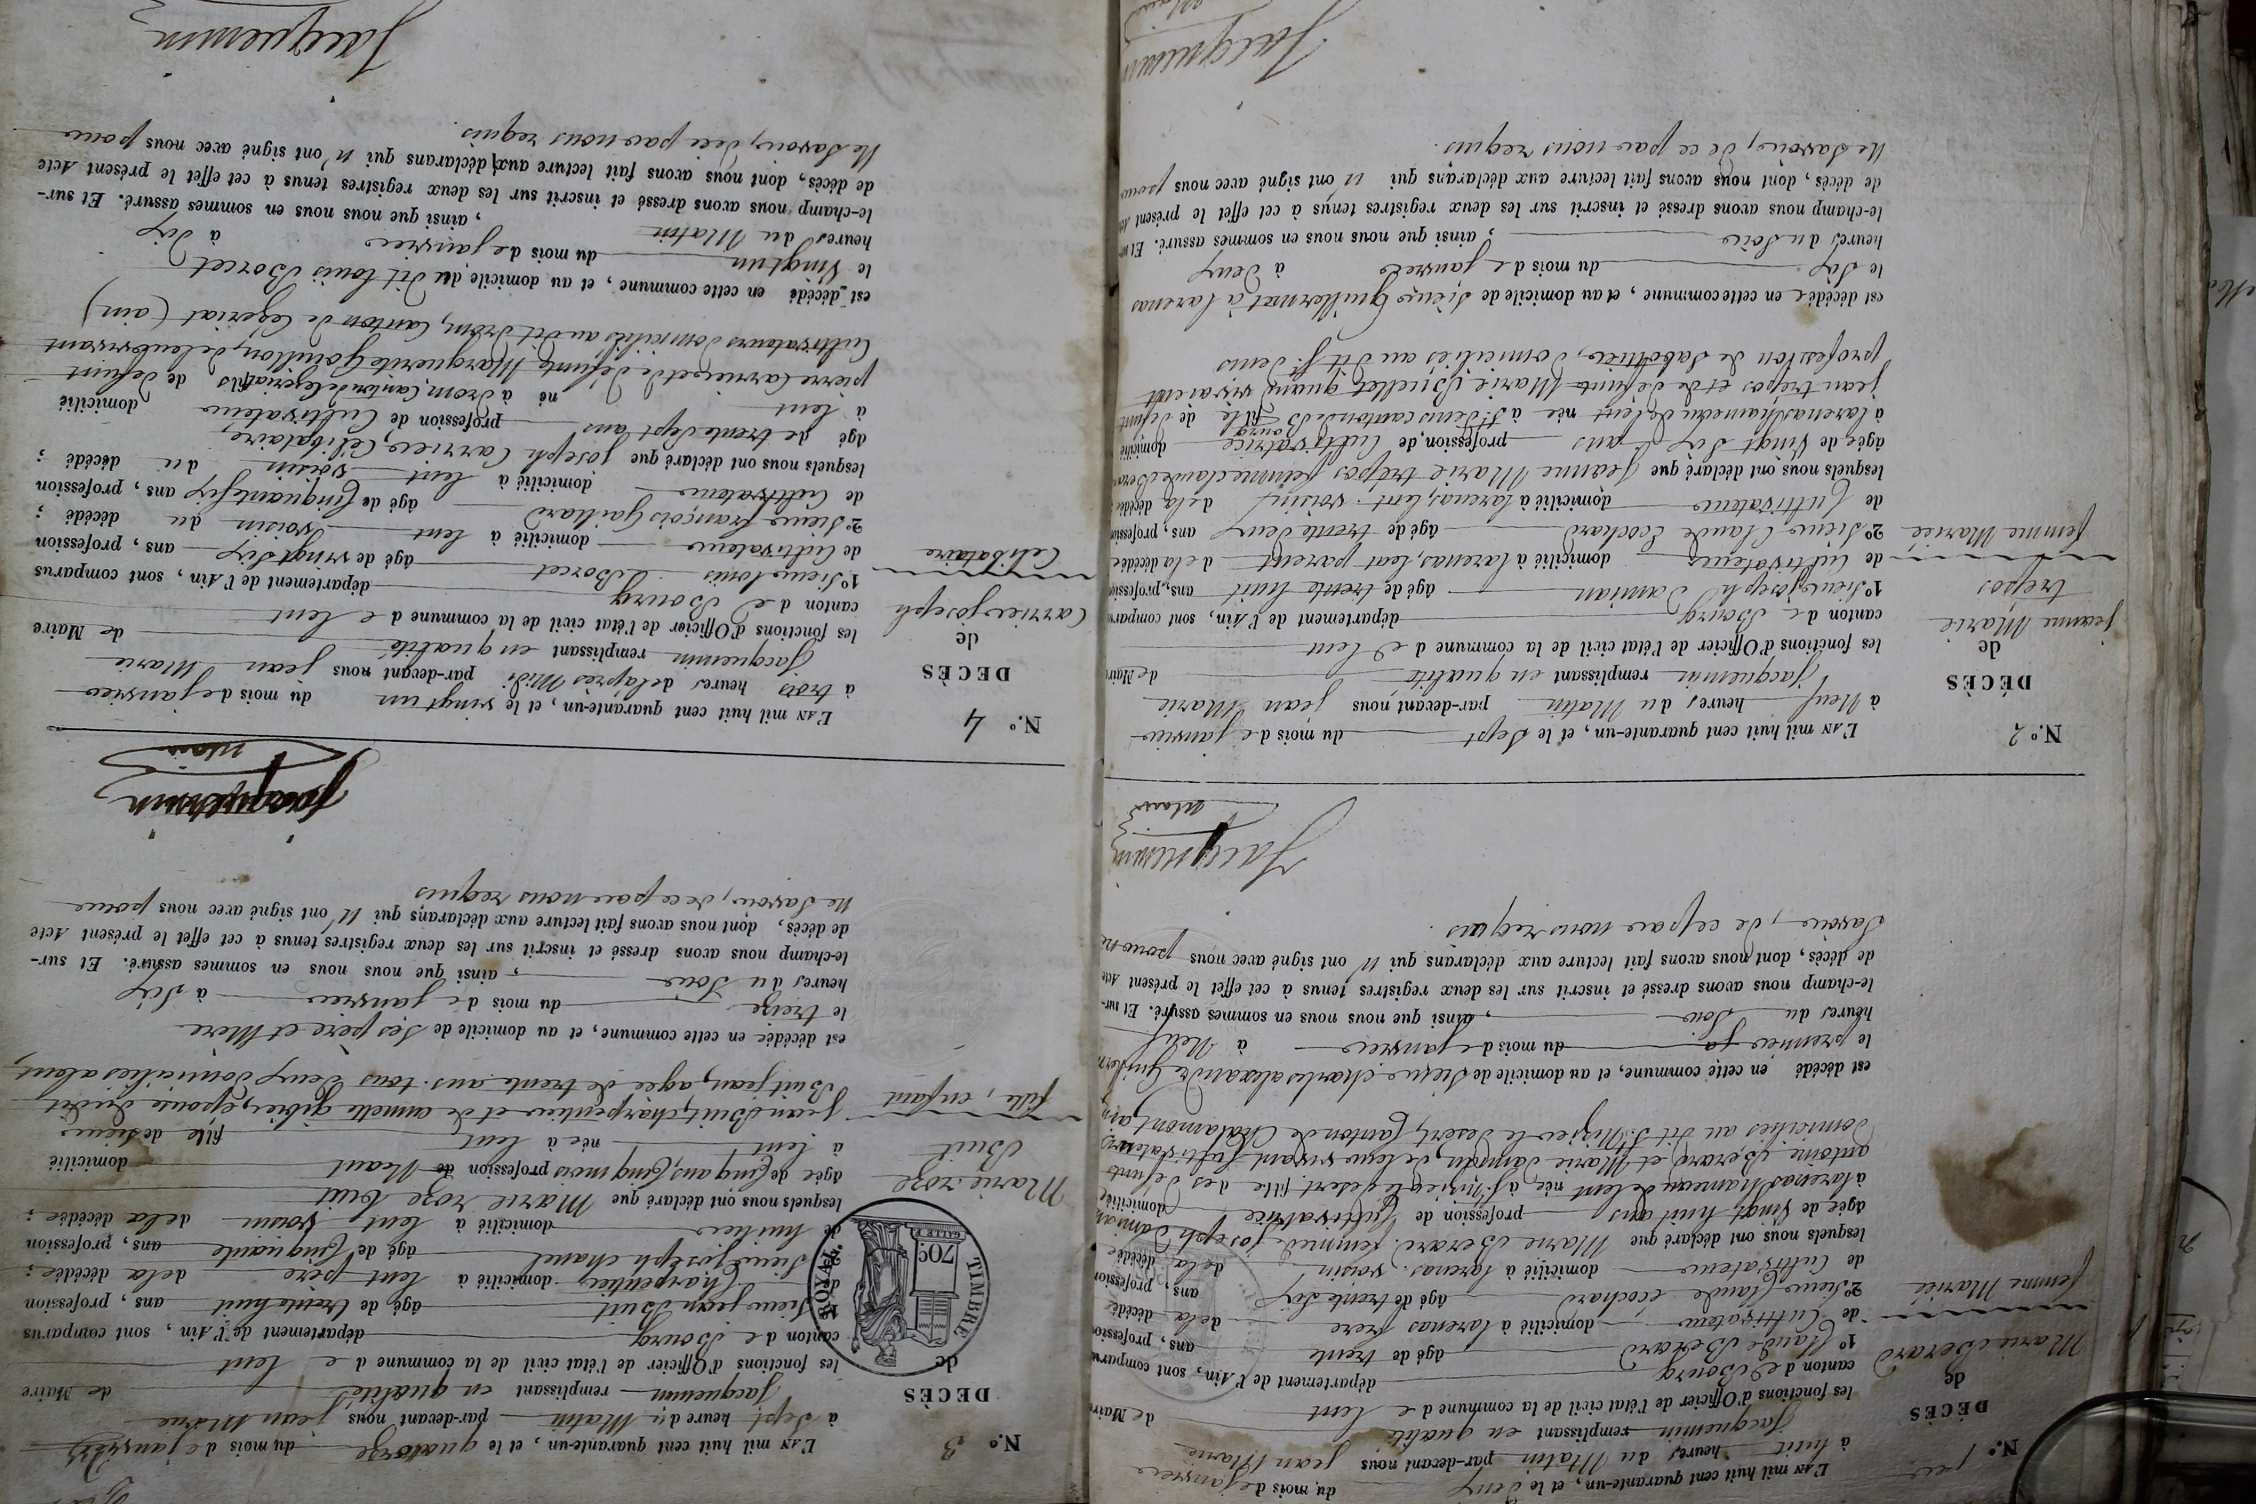 N.º 1er
DÉCÈS
de
Marie Berard
femme Mariée
L'AN mil huit cent quarante-un, et le deux du mois de janvier
à huit heures du Matin par-devant nous jean Marie
Jacquemin remplissant en qualité de Maire
les fonctions d'Officier de l'état civil de la commune de Lent
canton de Bourg département de l'Ain, sont comparus
1º Claude Berard âgé de trente ans, profession
de Cultivateur domicilié à larenas frere de la décédée
2º Sieur Claude Ecochard âgé de trente six ans, profession
de Cultivateur domicilié à larenas. voisin de la décédée
lesquels nous ont déclaré que Marie Berard, femme de joseph Damian
âgée de Vingt huit ans profession de Cultivatrice domiciliée
à larenas hameau de lent née à St Nizier le desert fille des defunts
antoine Berard et Marie Damian, de leur vivant Cultivateurs
domiciliés au dit St Nizier le Desert Canton de Chalamont
est décédée en cette commune, et au domicile de Sieur Charles alexandre
le premier du mois de janvier à Neuf
heures du Soir, ainsi que nous nous en sommes assuré. Et sur-
le-champ nous avons dressé et inscrit sur les deux registres tenus à cet effet le présent Acte
de décès, dont nous avons fait lecture aux déclarans qui n'ont signé avec nous pour ne
Savoir, de ce par nous requis.
Jacquemin
Maire
N.º 2
DÉCÈS
de
jeanne Marie
trepos
femme Mariée
L'AN mil huit cent quarante-un, et le Sept du mois de janvier
à Neuf heures du Matin par-devant nous jean Marie
Jacquemin remplissant en qualité de Maire
les fonctions d'Officier de l'état civil de la commune de Lent
canton de Bourg département de l'Ain, sont comparus
1º Sieur joseph Damian âgé de trente huit ans, profession
de Cultivateur domicilié à larenas, lent parent de la décédée
2º Sieur Claude Ecochard âgé de trente deux ans, profession
de Cultivateur domicilié à larenas, lent. voisin de la décédée
lesquels nous ont déclaré que Jeanne Marie trepos femme de claude
âgée de Vingt Six ans profession de Cultivatrice domicilié
à larenas hameau de lent née à St Denis canton de Bourg fille de defunt
jean trepos et de defunte Marie Buellet quand vivaient
profession de Sabottier, domiciliés au dit St Denis
est décédée en cette commune, et au domicile de Sieur Guillermat à larenas
le Six du mois de janvier à deux
heures du Soir, ainsi que nous nous en sommes assuré. Et sur-
le-champ nous avons dressé et inscrit sur les deux registres tenus à cet effet le présent Acte
de décès, dont nous avons fait lecture aux déclarans qui n'ont signé avec nous pour
Ne Savoir, de ce par nous requis.
Jacquemin
Maire
N.º 3
DÉCÈS
de
Marie roze
Buit
fille, enfant
TIMBRE ROYAL
70 C
L'AN mil huit cent quarante-un, et le quatorze du mois de janvier
à Sept heure du Matin par-devant nous jean Marie
Jacquemin remplissant en qualité de Maire
les fonctions d'Officier de l'état civil de la commune de Lent
canton de Bourg département de l'Ain, sont comparus
Sieur jean Buit âgé de trente huit ans, profession
de Charpentier domicilié à lent père de la décédée ;
Sieur joseph chanel âgé de Cinquante ans, profession
de huilier domicilié à lent voisin de la décédée ;
lesquels nous ont déclaré que Marie roze Buit
âgée de Cinq ans, Cinq mois profession de Neant domicilié
à lent née à lent fille de Sieur
jean Buit, charpentier et de annette gibier, épouse dudit
Buit jean, agée de trente ans. tous deux domiciliés a lent,
est décédée en cette commune, et au domicile de Ses père et Mere
le treize du mois de janvier à Six
heures du Soir, ainsi que nous nous en sommes assuré. Et sur-
le-champ nous avons dressé et inscrit sur les deux registres tenus à cet effet le présent Acte
de décès, dont nous avons fait lecture aux déclarans qui n'ont signé avec nous pour
Ne Savoir, de ce par nous requis
Jacquemin
Maire
N.º 4
DÉCÈS
de
Carrier joseph
Celibataire
L'AN mil huit cent quarante-un, et le vingt un du mois de janvier
à trois heures de laprès Midi par-devant nous jean Marie
Jacquemin remplissant en qualité de Maire
les fonctions d'Officier de l'état civil de la commune de Lent
canton de Bourg département de l'Ain, sont comparus
1º Sieur louis Borcet âgé de vingt Six ans, profession
de Cultivateur domicilié à lent Voisin du décédé ;
2º Sieur françois Gaillard âgé de Cinquante Six ans, profession
de Cultivateur domicilié à lent voisin du décédé ;
lesquels nous ont déclaré que joseph Carrier, Célibataire
âgé de trente Sept ans profession de Cultivateur domicilié
à lent né à drom, Canton de Cezeriat fils de defunt
pierre Carrier, et de défunte Marguerite Gouillon, de leur vivant
Cultivateurs domiciliés au dit drom, Canton de Cezeriat (ain)
est décédé en cette commune, et au domicile du dit louis Borcet
le Vingt un du mois de janvier à Six
heures du Matin, ainsi que nous nous en sommes assuré. Et sur-
le-champ nous avons dressé et inscrit sur les deux registres tenus à cet effet le présent Acte
de décès, dont nous avons fait lecture aux déclarans qui n'ont signé avec nous pour
Ne Savoir, de ce par nous requis.
Jacquemin